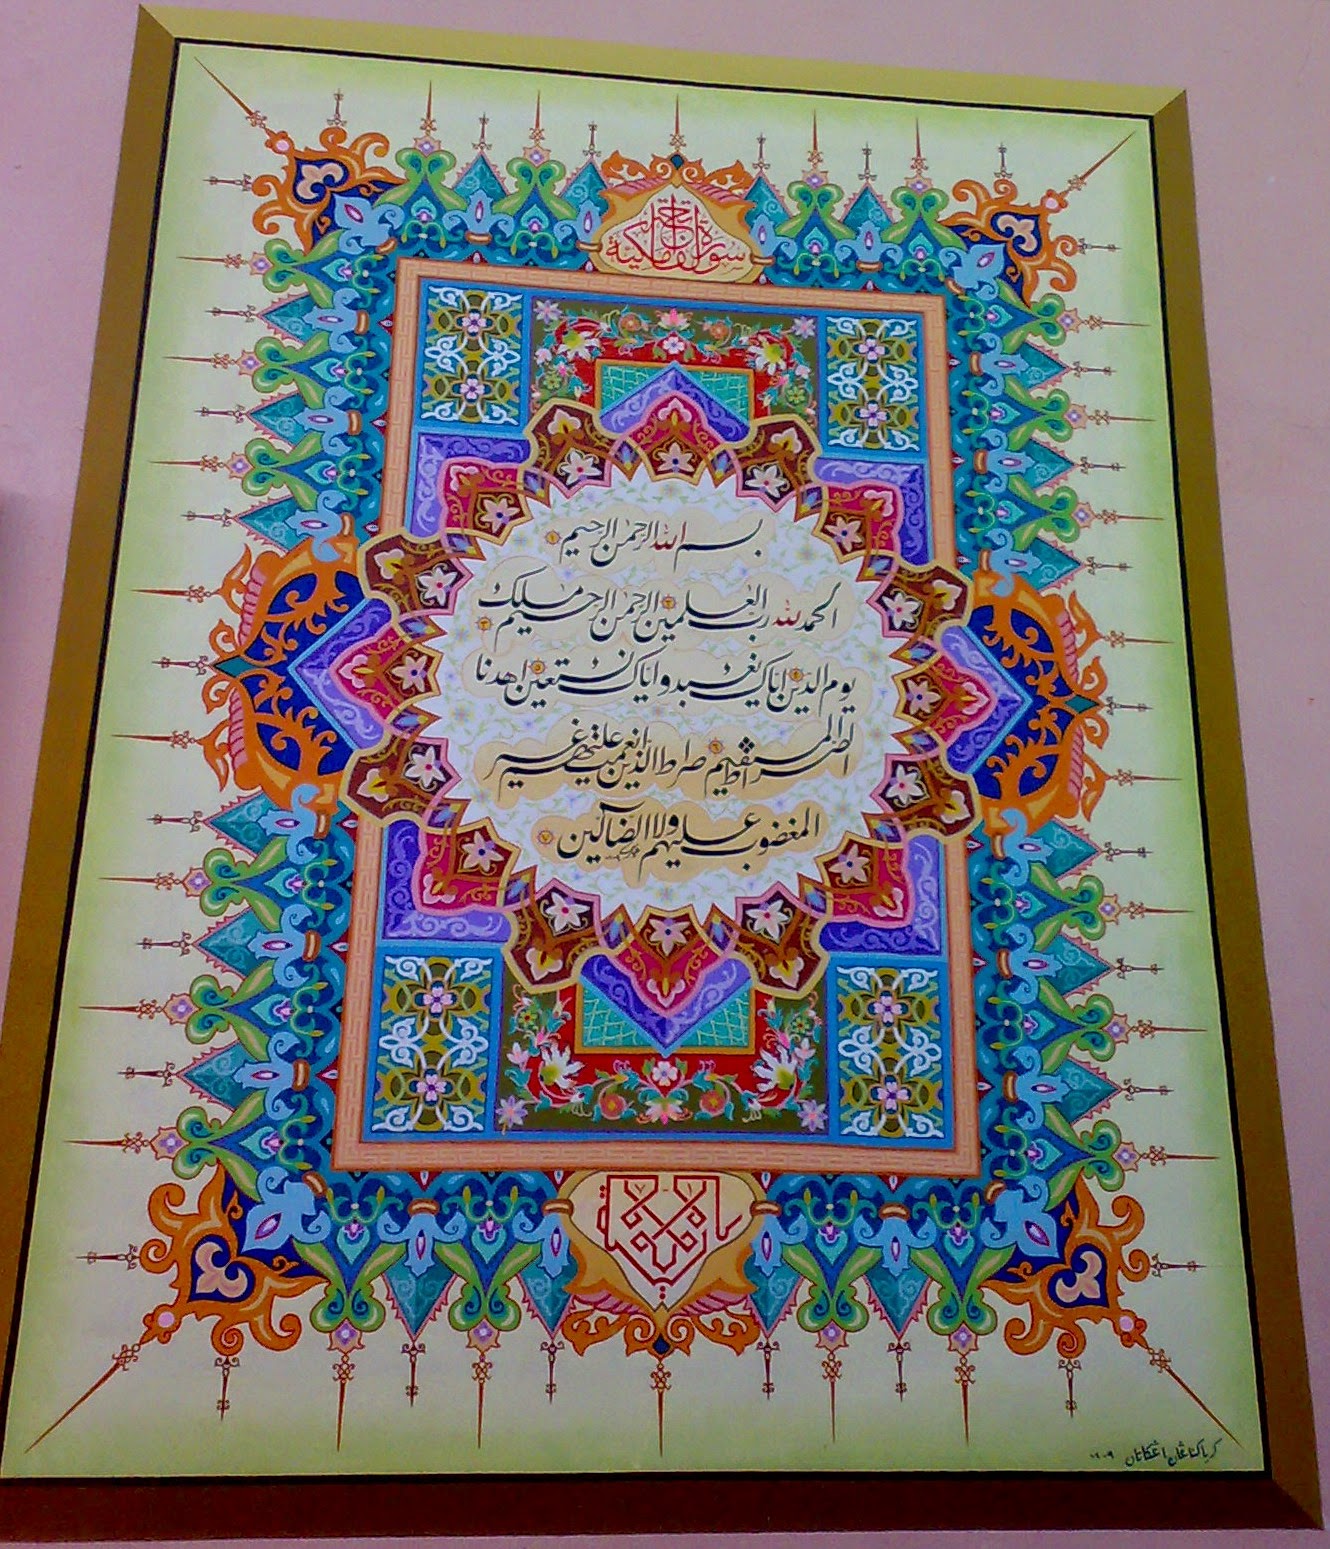 سورة الفاتحة مكية
بسم الله الرحمن الرحيم ١
الحمد لله رب العلمين ٢ الرحمن الرحيم ٣ ملك
يوم الدين ٤ اياك نعبد واياك نستعين ٥ اهدنا
الصراط المستقيم ٦ صراط الذين انعمت عليهم غير
المغضوب عليهم ولا الضآلين ٧